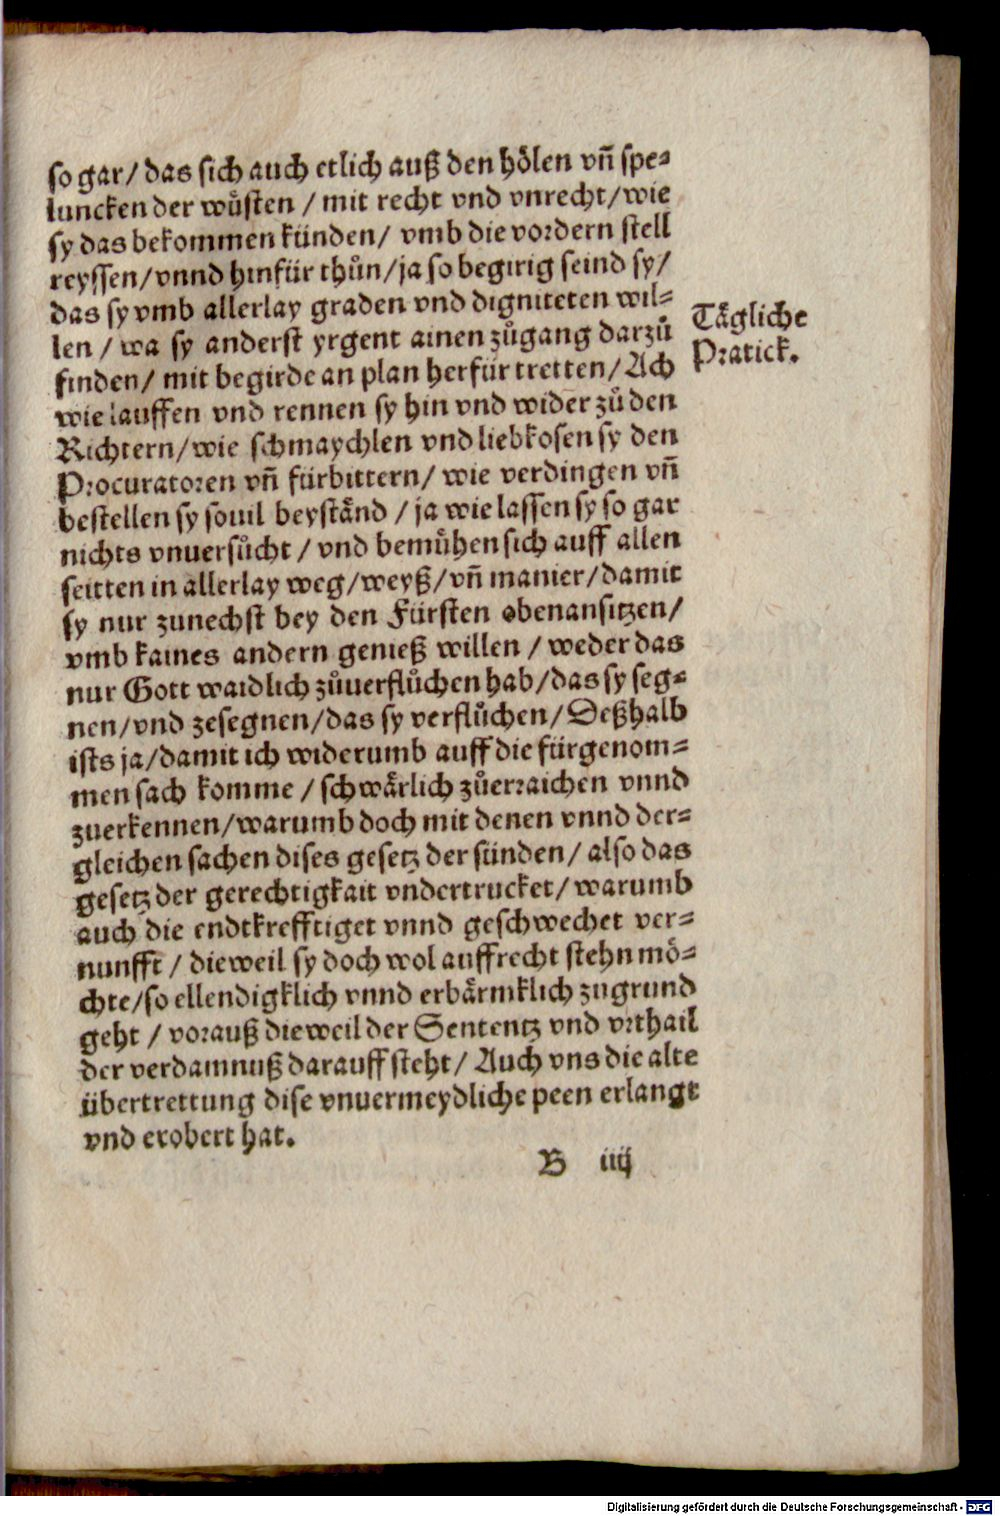 so gar/ das sich auch etlich auß den hölen vñ spe-
luncken der wüsten / mit recht vnd vnrecht/ wie
sy das bekommen künden/ vmb die vordern stell
reyssen/ vnnd hinfür thůn/ ja so begirig seind sy/
das sy vmb allerlay graden vnd digniteten wil-
len / wa sy anderst yrgent ainen zůgang darzů
Tägliche
Pratick.
finden/ mit begirde an plan herfür tretten/ Ach
wie lauffen vnd rennen sy hin vnd wider zů den
Richtern/ wie schmaychlen vnd liebkosen sy den
Procuratoren vñ fürbittern/ wie verdingen vñ
bestellen sy souil beyständ / ja wie lassen sy so gar
nichts vnuersůcht / vnd bemühen sich auff allen
seitten in allerlay weg/ weyß/ vñ manier/ damit
sy nur zunechst bey den Fürsten obenansitzen/
vmb kaines andern genieß willen / weder das
nur Gott waidlich zůuerflůchen hab/ das sy seg-
nen/ vnd zesegnen/ das sy verflůchen/ Deßhalb
ists ja/ damit ich widerumb auff die fürgenom-
men sach komme / schwärlich zůerraichen vnnd
zuerkennen/ warumb doch mit denen vnnd der-
gleichen sachen dises gesetz der sünden/ also das
gesetz der gerechtigkait vndertrucket/ warumb
auch die endtkrefftiget vnnd geschwechet ver-
nunfft / dieweil sy doch wol auffrecht stehn mö-
chte/ so ellendigklich vnnd erbärmklich zugrund
geht / vorauß dieweil der Sententz vnd vrthail
der verdamnuß darauff steht/ Auch vns die alte
übertrettung dise vnuermeydliche peen erlangt
vnd erobert hat.
B iiij
Digitalisierung gefördert durch die Deutsche Forschungsgemeinschaft - DFG